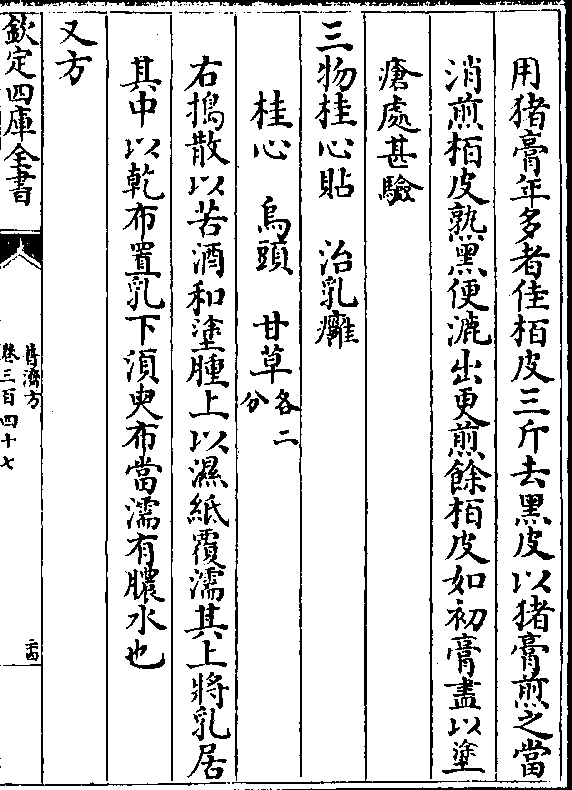 用猪膏年多者佳栢皮三斤去黑皮以猪膏煎之當
消煎栢皮熟黒便漉出更煎餘栢皮如初膏盡以塗
瘡處甚驗
三物桂心貼　治乳癰
桂心　烏頭　甘草各二分
右搗散以苦酒和塗腫上以濕紙覆濡其上將乳居
其中以乾布置乳下須臾布當濡有膿水也
又方
欽定四庫全書
普濟方
卷三百四十七